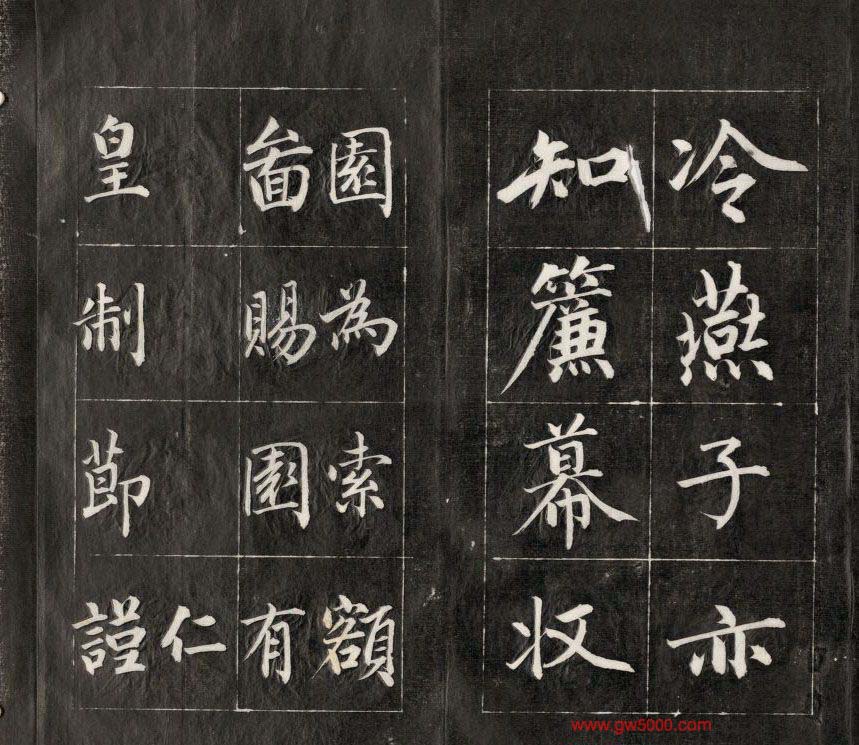 冷燕子亦
知簾幕収
園為索額
啚賜園有
仁
皇制節謹
www.gw5000.com